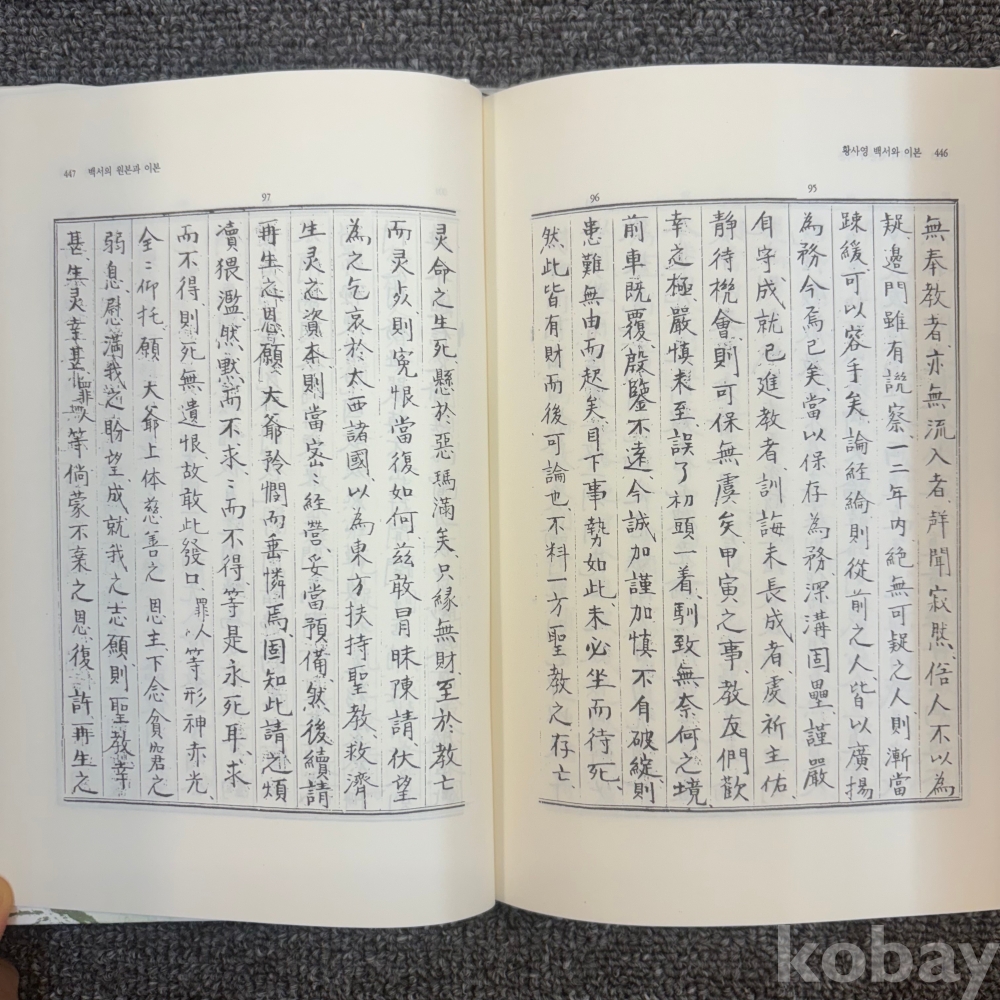 황사영 백서와 이본 446
95
96
無奉教者、亦無流入者、群聞寂然、俗人不以為
疑、邊門雖有譏察、一二年內絕無可疑之人、則漸當
踈緩、可以容手矣、論経綸則從前之人、皆以廣揚
為務、今焉已矣、當以保存為務、深溝固壘、謹嚴
自守、成就已進教者、訓誨未長成者、虔祈主佑、
靜待機會、則可保無虞矣、甲寅之事、教友們歡
幸之極、嚴慎未至、誤了初頭一着、馴致無奈何之境、
前車旣覆、殷鑒不遠、今誠加謹加慎、不自破綻、則
患難無由而起矣、目下事勢如此、未必坐而待死、
然此皆有財而後可論也、不料一方聖教之存亡、
447 백서의 원본과 이본
97
灵命之生死、懸於惡瑪滿矣、只緣無財、至於教亡
而灵㱁、則寃恨當復如何、茲敢冒昧陳請、伏望
為之乞哀於太西諸國、以為東方扶持聖教、救濟
生灵之資夲、則當密〻経營、妥當預備、然後續請
再生之恩、願 大爺矜憫而垂憐焉、固知此請之煩
凟猥濫、然默而不求、〻而不得、等是永死耳、求
而不得、則死無遺恨、故敢此發口、罪人等形神赤光、
全〻仰托、願 大爺上体慈善之 恩主、下念貧窮之
弱息、慰滿我之盼望、成就我之志願、則聖教幸
甚、生灵幸甚、罪人等倘蒙不棄之恩、復許再生之
kobay